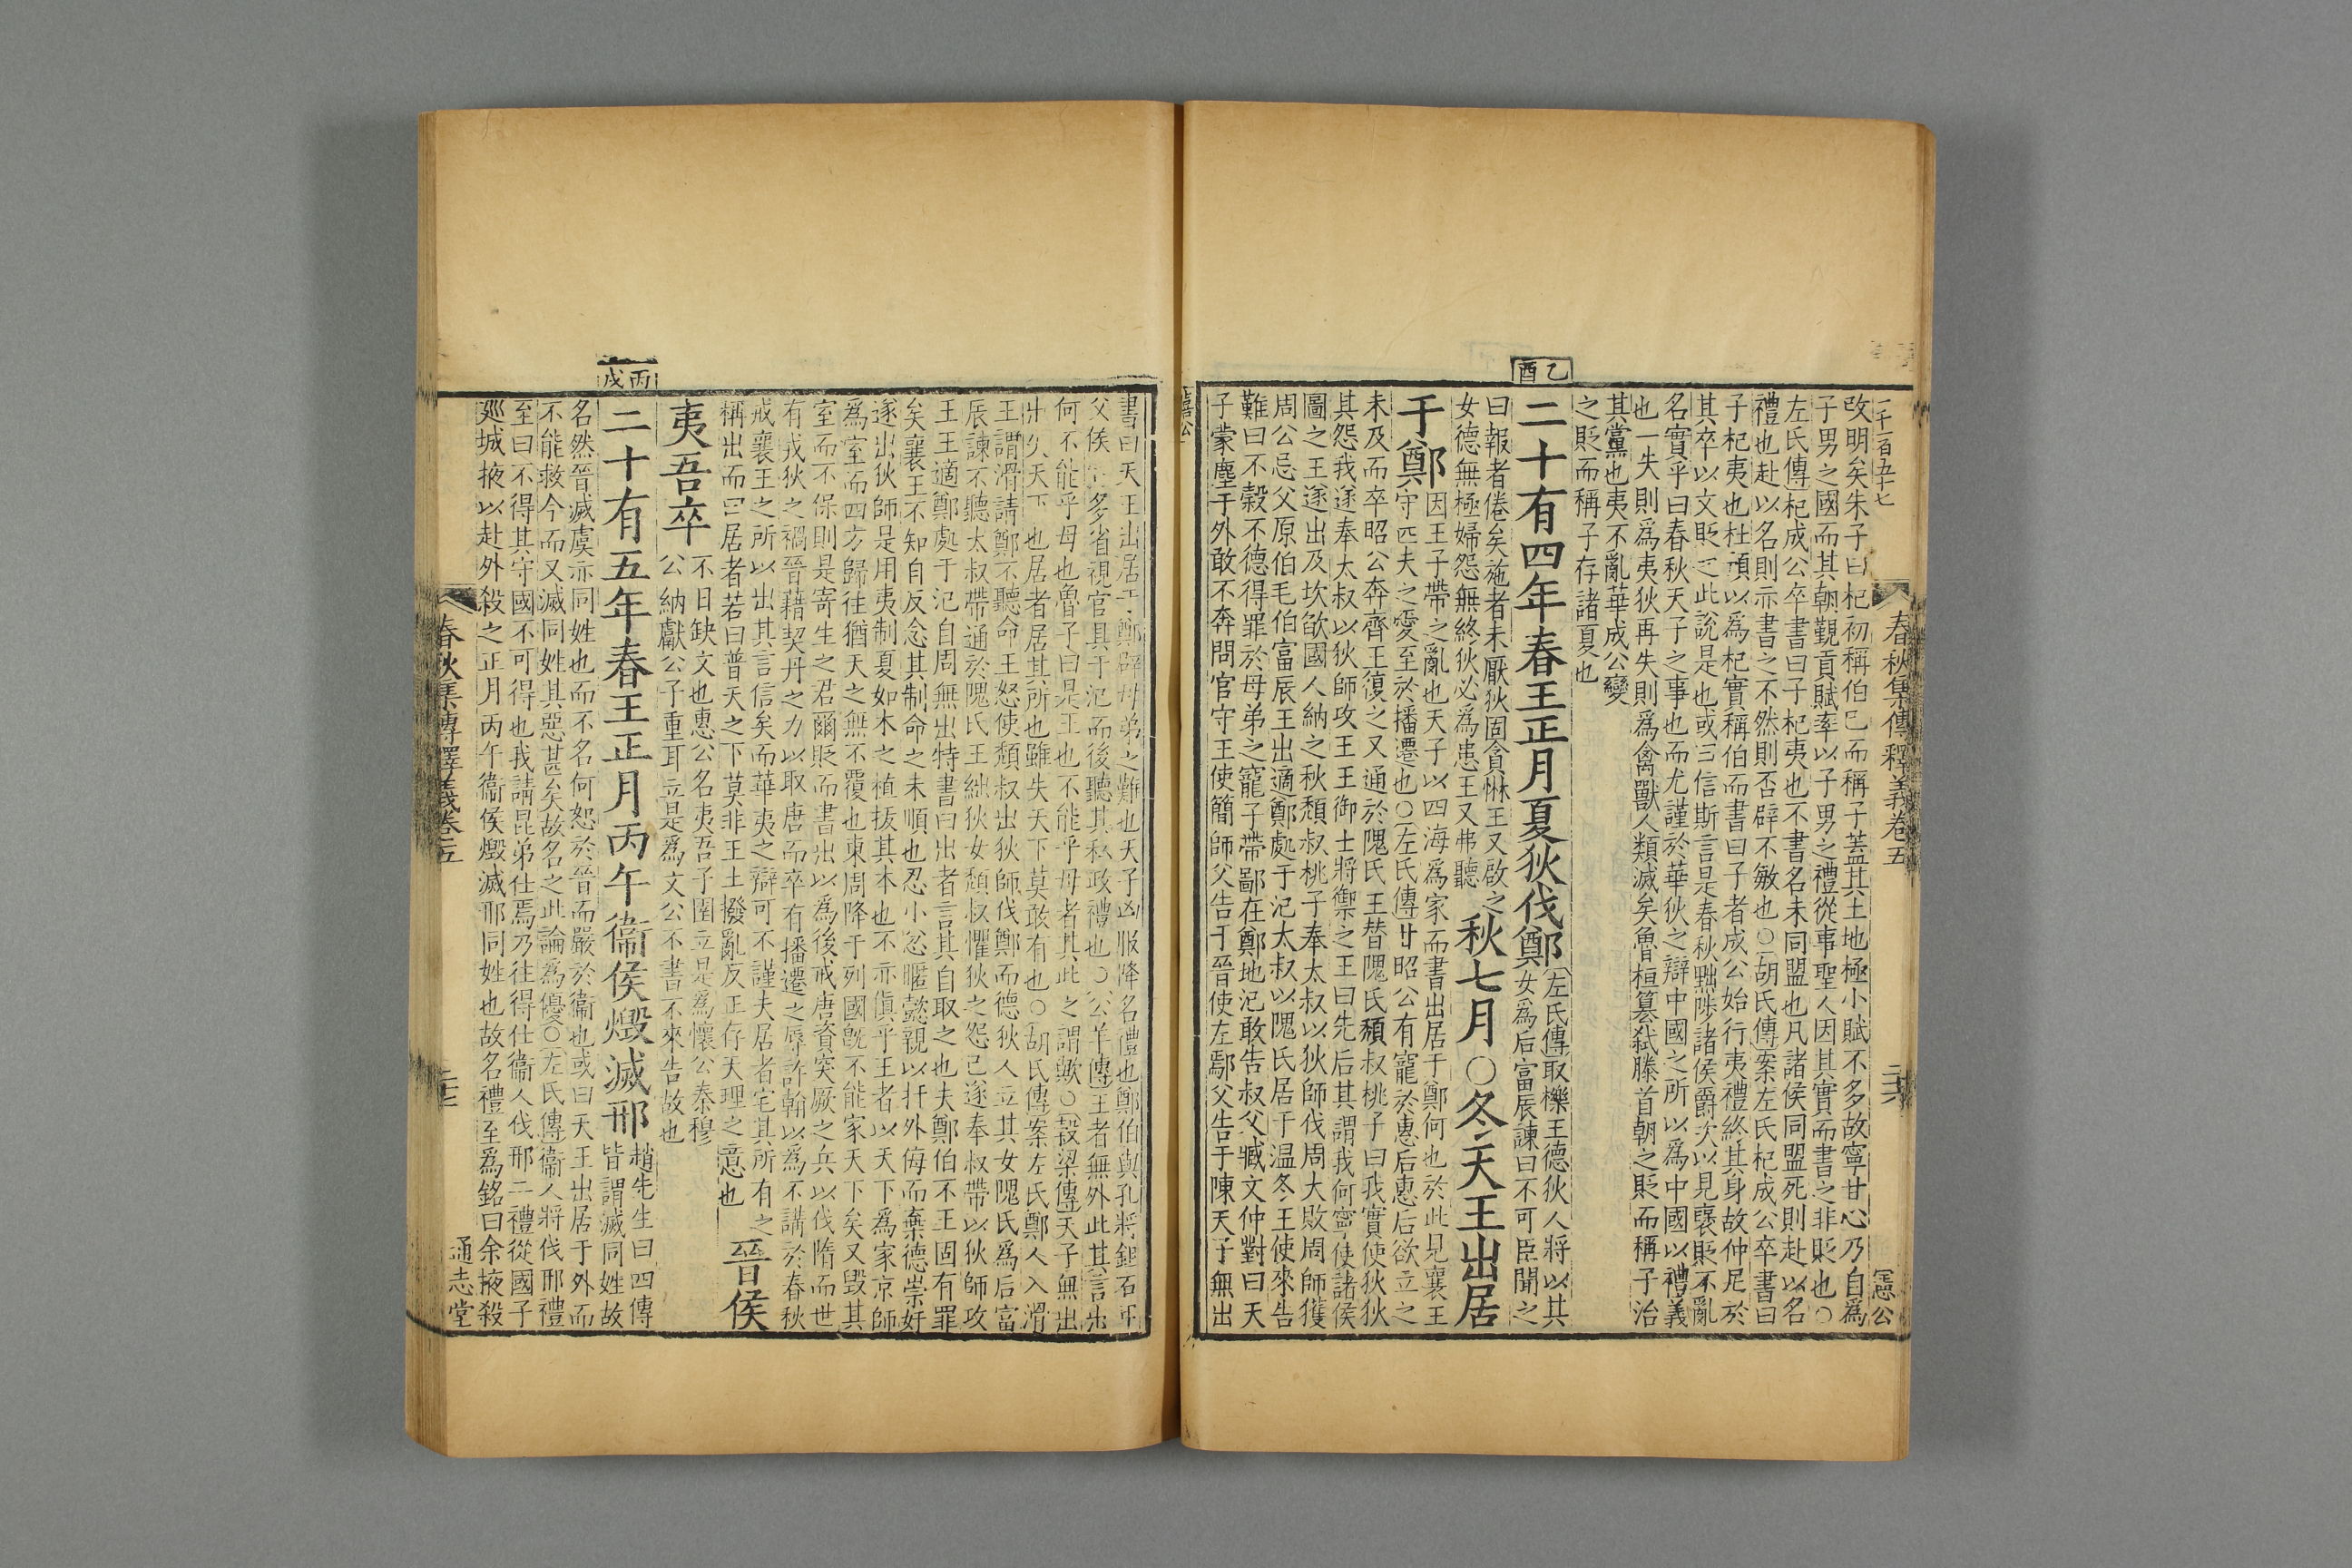 一千一百五十七
春秋集傳釋義卷五
改明矣朱子曰杞初稱伯已而稱子蓋其土地極小賦不多故寧甘心乃自爲
子男之國而其朝覲貢賦率以子男之禮從事聖人因其實而書之非貶也○
左氏傳杞成公卒書曰子杞夷也不書名未同盟也凡諸侯同盟死則赴以名
禮也赴以名則亦書之不然則否辟不敏也○胡氏傳案左氏杞成公卒書曰
子杞夷也杜預以爲杞實稱伯而書曰子者成公始行夷禮終其身故仲尼於
其卒以文貶之此說是也或三信斯言是春秋黜陟諸侯爵次以見襃貶不亂
名實乎曰春秋天子之事也而尤謹於華狄之辯中國之所以爲中國以禮義
也一失則爲夷狄再失則爲禽獸人類滅矣魯桓篡弒滕首朝之貶而稱子治
其黨也夷不亂華成公變
之貶而稱子存諸夏也
乙酉
二十有四年春王正月夏狄伐鄭左氏傳取櫟王德狄人將以其
女爲后富辰諫曰不可臣聞之
曰報者倦矣施者未厭狄固貪惏王又啟之
女德無極婦怨無終狄必爲患王又弗聽秋七月○冬天王出居
于鄭因王子帶之亂也天子以四海爲家而書出居于鄭何也於此見襄王
守匹夫之愛至於播遷也○左氏傳甘昭公有寵於惠后惠后欲立之
未及而卒昭公奔齊王復之又通於隗氏王替隗氏頹叔桃子曰我實使狄狄
其怨我遂奉太叔以狄師攻王王御士將禦之王曰先后其謂我何寧使諸侯
圖之王遂出及坎欿國人納之秋頹叔桃子奉太叔以狄師伐周大敗周師獲
周公忌父原伯毛伯富辰王出適鄭處于氾太叔以隗氏居于温冬王使來告
難曰不穀不德得罪於母弟之寵子帶鄙在鄭地氾敢告叔父臧文仲對曰天
子蒙塵于外敢不奔問官守王使簡師父告于晉使左鄢父告于陳天子無出
書曰天王出居于鄭辟母弟之難也天子凶服降名禮也鄭伯與孔將鉏石甲
父侯多省視官具于氾而後聽其私政禮也○公羊傳王者無外此其言出
何不能乎母也魯子曰是王也不能乎母者其此之謂歟○穀梁傳天子無出
出失天下也居者居其所也雖失天下莫敢有也○胡氏傳案左氏鄭人入滑
王謂滑請鄭不聽命王怒使頹叔出狄師伐鄭而德狄人立其女隗氏爲后富
辰諫不聽太叔帶通於隗氏王絀狄女頹叔懼狄之怨己遂奉叔帶以狄師攻
王王適鄭處于氾自周無出特書曰出者言其自取之也夫鄭伯不王固有罪
矣襄王不知自反念其制命之未順也忍小忿暱懿親以扞外侮而棄德崇奸
遂出狄師是用夷制夏如木之植拔其本也不亦傎乎王者以天下爲家京師
爲室而四方歸往猶天之無不覆也東周降于列國旣不能家天下矣又毀其
室而不保則是寄生之君爾貶而書出以爲後戒唐資突厥之兵以伐隋而世
有戎狄之禍晉藉契丹之力以取唐而卒有播遷之辱許翰以爲不講於春秋
戒襄王之所以出其言信矣而華夷之辯可不謹夫居者宅其所有之
稱出而曰居者若曰普天之下莫非王土撥亂反正存天理之意也晉侯
夷吾卒不日缺文也惠公名夷吾子圉立是爲懷公秦穆
公納獻公子重耳立是爲文公不書不來告故也
丙戌
二十有五年春王正月丙午衞侯燬滅邢趙先生曰四傳
皆謂滅同姓故
名然晉滅虞亦同姓也而不名何恕於晉而嚴於衞也或曰天王出居于外而
不能救今而又滅同姓其惡甚矣故名之此論爲優○左氏傳衞人將伐邢禮
至曰不得其守國不可得也我請昆弟仕焉乃往得仕衞人伐邢二禮從國子
廵城掖以赴外殺之正月丙午衞侯燬滅邢同姓也故名禮至爲銘曰余掖殺
春秋集傳釋義卷五
通志堂